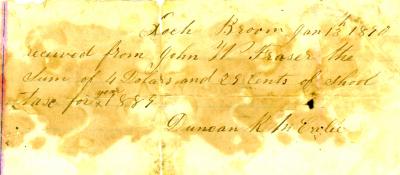 Loch Broom Jan 13th 1890
received from John W Fraser the
Sum of 4 Dolars and 25 Cents of shool
taxe for year 1889
Duncan K